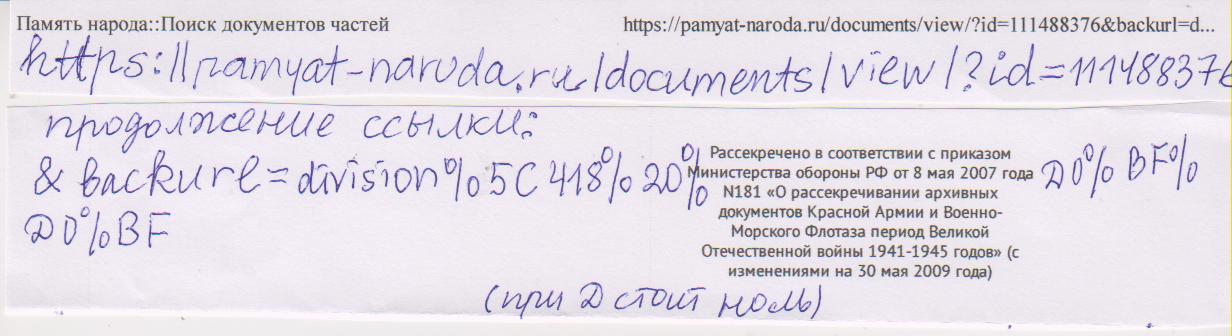 Память народа::Поиск документов частей https://pamyat-naroda.ru/documents/view/?id=111488376&backurl=d...
https://pamyat-naroda.ru/documents/view/?id=111488376
продолжение ссылки:
& backurl=division%5C418%20% D0%BF%
D0%BF
Рассекречено в соответствии с приказом
Министерства обороны РФ от 8 мая 2007 года
N181 «О рассекречивании архивных
документов Красной Армии и Военно-
Морского Флотаза период Великой
Отечественной войны 1941-1945 годов» (с
изменениями на 30 мая 2009 года)
(при D стоит ноль)